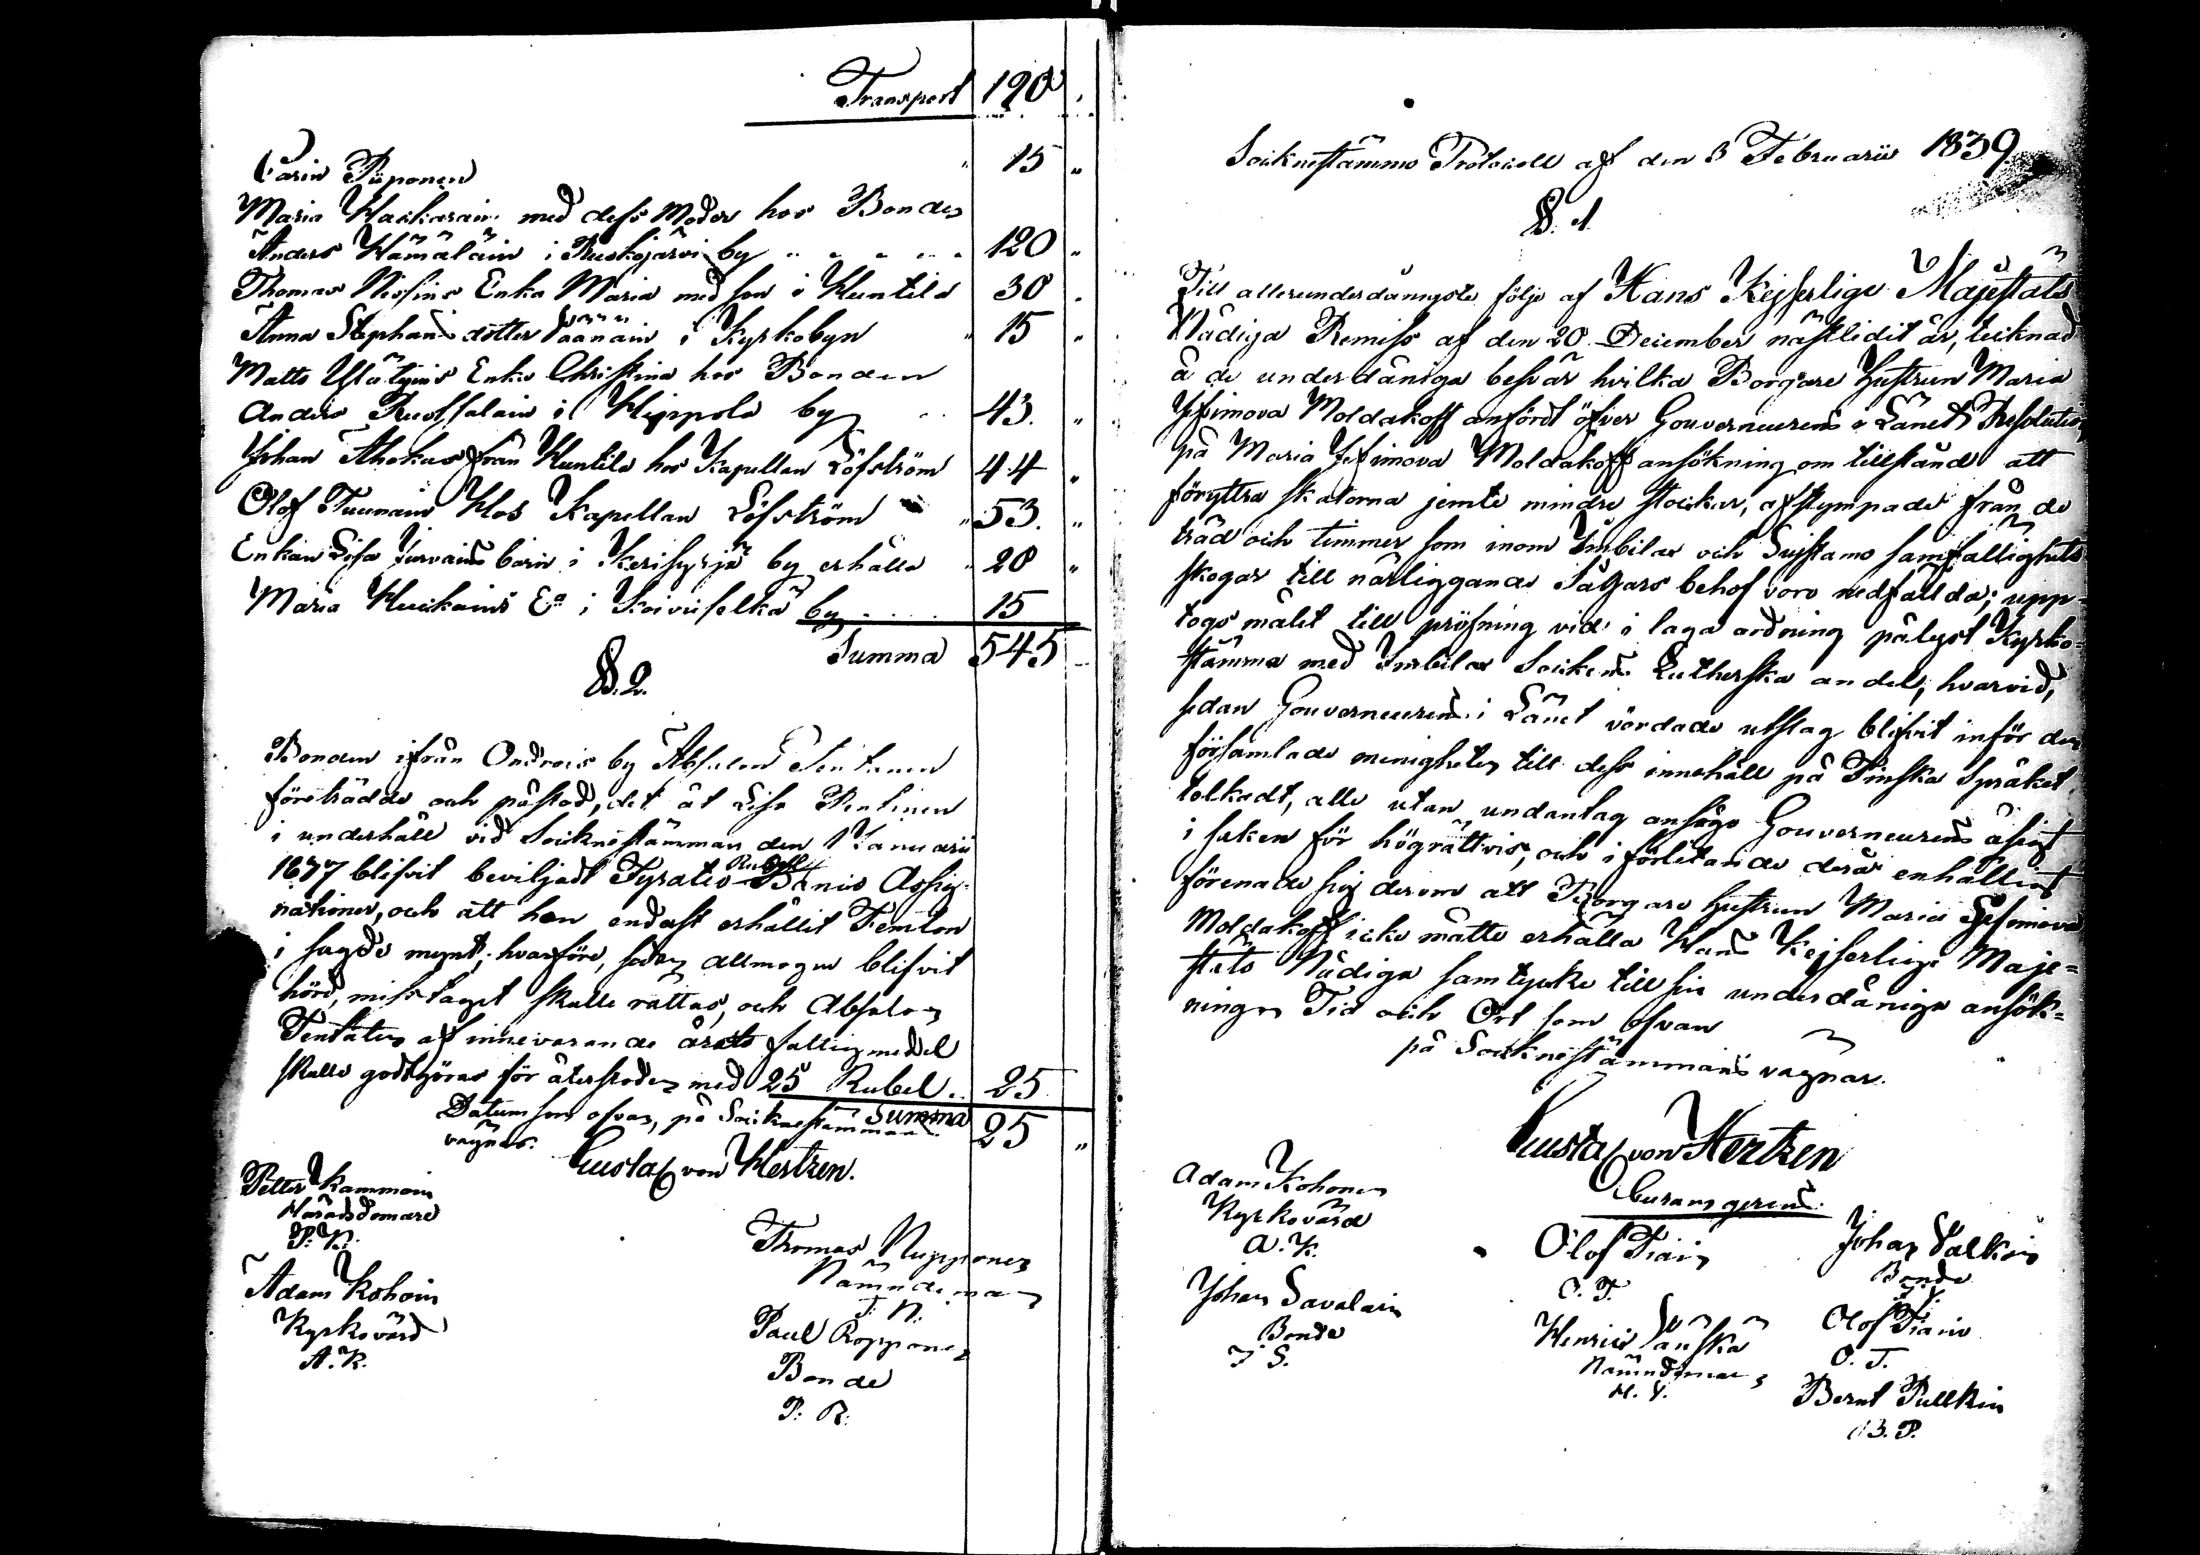 Transport 190
Carin Piiponen " 15 "
Maria Kaskarain med dess Moder hos Bonden
Anders Hämäläin i Ruskojärvi by 120 "
Thomas Nissins Enka Maria med son i Huntila 30
Anna Stephans dotter Väänäin i Kyrkobyn " 15 "
Matts Enka Christina hos Bonden
Anders Ruotsalain i Hippola by 43. "
Johan Ahokas från Huntila hos Kapellan Löfström 44 "
Olof Tuunain Hos Kapellan Löfström " 53. "
Enkan Lisa barn i by erhålla " 20 "
Maria Huikains Ea i Koiviselkä by 15
Summa 545
§. 2.
Bonden ifrån Ondrois by Absalon
förеträdde och påstod, det åt Lisa Pentinen
i underhåll vid Socknestämman den 1 Januarii
1837 blifvit beviljadt Fyratio Rubel Banco Assig-
nationer, och att hon endast erhållit Femton
i sagde mynt; hvarföre, sedan allmogen blifvit
hörd, misstaget skulle rättas, och Absalon
af innevarande årets fattigmedel
skulle godtgöras för återstoden med 25 Rubel .. 25
Datum som ofvan, på Socknestämmans Summa 25 "
vägnar.
Gustaf von Hertzen.
Petter Kammoin
Häradsdomare
P. K.
Adam Kohoin
Kyrkovärd
A. K.
Thomas Nupponen
Nämndeman
T. N.
Paul Ropponen
Bonde
P: R:
Socknestämmo Protocoll af den 3 Februarii 1839.
§. 1
Till allerunderdånigste följe af Hans Kejserlige Majestäts
Nådiga Remiss af den 20 December nästlidit år, tecknad
å de underdåniga besvär hvilka Borgare Hustrun Maria
Jefimova Moldakoff anfördt öfver Gouverneurens i Länet Resolution
på Maria Jefimova Moldakoff ansökning om tillstånd att
föryttra skatorna jemte mindre stockar, afstympade från de
träd och timmer som inom Imbilax och Suistamo samfällighets
skogar till närliggande Sågars behof voro nedfällda; upp-
togs målet till pröfning vid i laga ordning pålyst Kyrko=
stämma med Imbilax Sockens Lutherska andel, hvarvid,
sedan Gouverneurens i Länet vördade utslag blifvit inför den
församlade menigheten till dess innehåll på Finska Språket
tolkadt, alle utan undantag ansågo Gouverneurens åsigt
i saken för högrättvis, och i förlitande derå enhälligt
förenade sig derom att Borgare hustrun Maria Jefimova
Moldakoff icke måtte erhålla Hans Kejserlige Maje=
stäts Nådiga samtycke till sin underdåniga ansök=
ning. Tid och Ort som ofvan
på Socknestämmans vägnar.
Gustaf von Hertzen
Curam gerens.
Adam Kohonen
Kyrkovärd
A. K.
Johan Savalain
Bonde
J S.
Olof Tiain
O. T.
Henric Länskä
Nämndeman
Johan Valkoin
Bonde
Olof Tiain
O. T.
Bernt Pullkin
B. P.